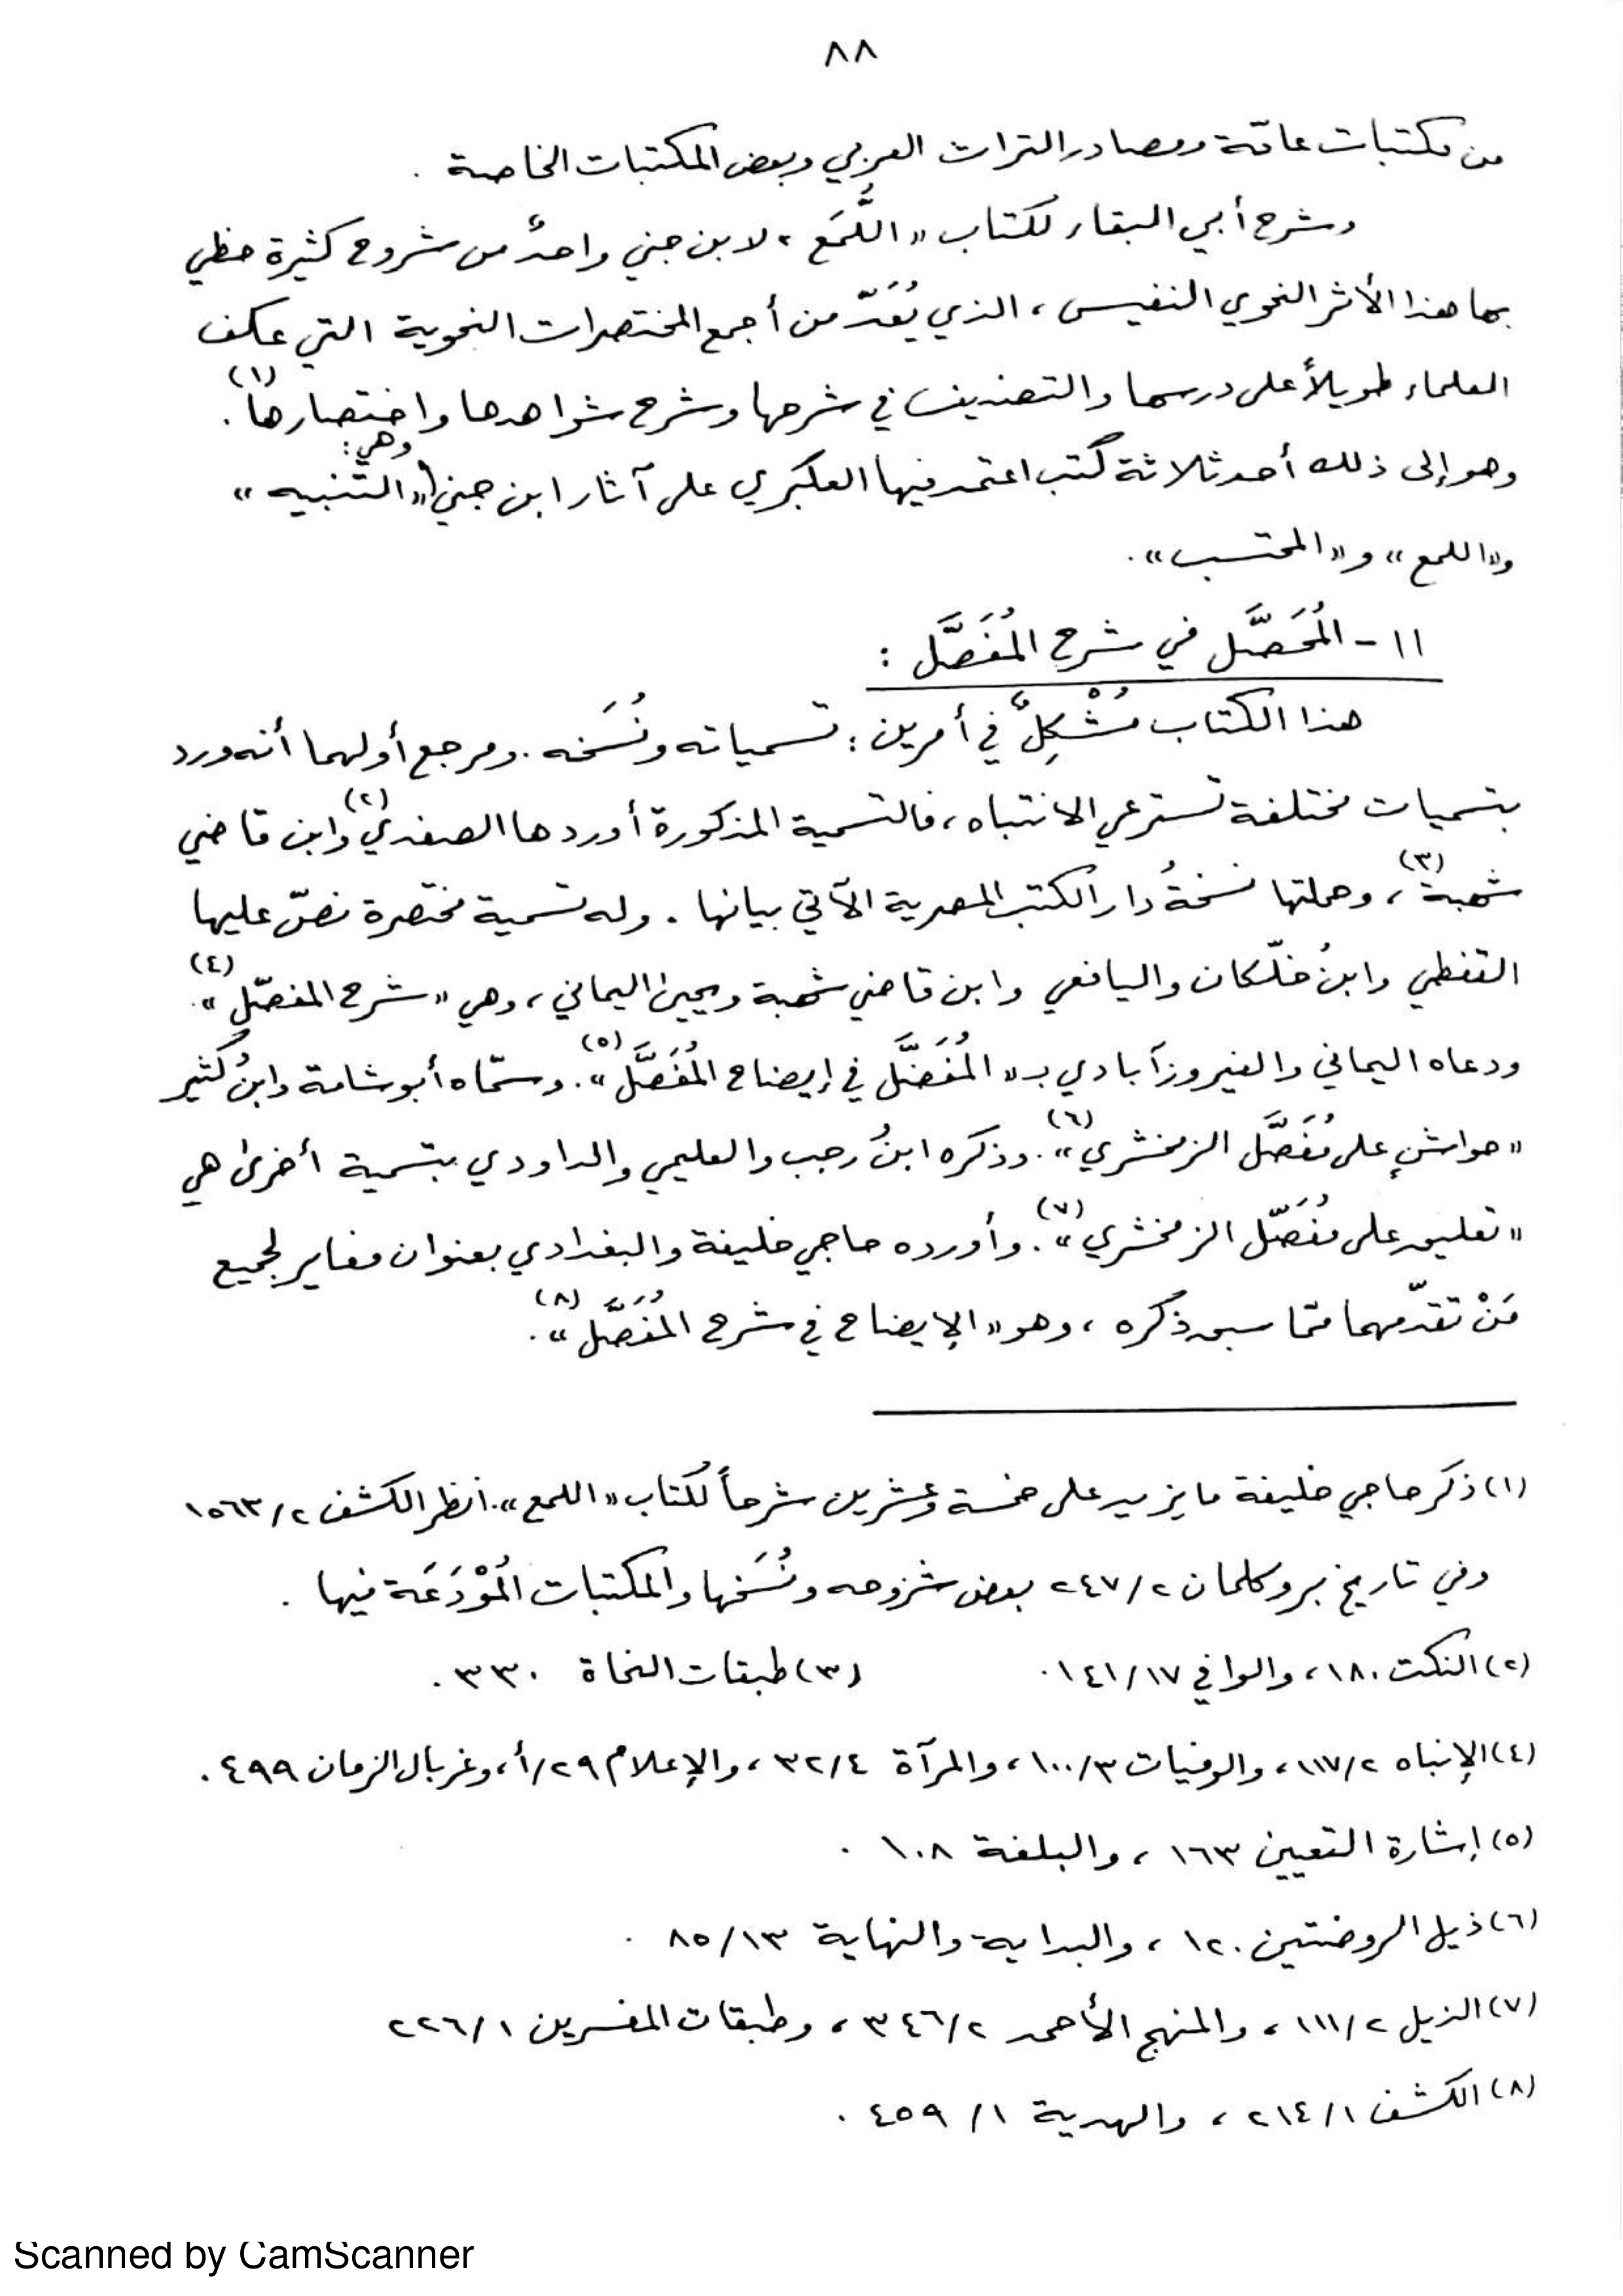 ٨٨
من مكتبات عامّة ومصادر التراث العربي وبعض المكتبات الخاصة .
وشرح أبي البقاء لكتاب «اللُّمَع» لابن جني واحدٌ من شروح كثيرة حظي
بها هذا الأثر النحوي النفيس، الذي يُعَدّ من أجمع المختصرات النحوية التي عكف
العلماء طويلاً على درسها والتصنيف في شرحها وشرح شواهدها واختصارها(١).
وهو إلى ذلك أحد ثلاثة كتب اعتمد فيها العكبري على آثار ابن جني وهي: «التنبيه»
و«اللمع» و«المحتسب».
١١ - المُحَصَّل في شرح المُفَصَّل :
هذا الكتاب مُشْكِلٌ في أمرين: تسمياته ونُسَخه. ومرجع أولهما أنه ورد
بتسميات مختلفة تسترعي الانتباه، فالتسمية المذكورة أوردها الصفدي(٢) وابن قاضي
شهبة(٣)، وحملتها نسخةُ دار الكتب المصرية الآتي بيانها. وله تسمية مختصرة نصّ عليها
القفطي وابنُ خلّكان واليافعي وابن قاضي شهبة ويحيى اليماني، وهي «شرح المفصّل»(٤).
ودعاه اليماني والفيروزآبادي بـ «المُفَضَّل في إيضاح المُفَصَّل»(٥). وسمّاه أبو شامة وابنُ كثير
«حواشٍ على مُفَصَّل الزمخشري»(٦). وذكره ابنُ رجب والعليمي والداودي بتسمية أخرى هي
«تعليق على مُفَصّل الزمخشري»(٧). وأورده حاجي خليفة والبغدادي بعنوان مغاير لجميع
مَنْ تقدّمهما ممّا سبق ذكره، وهو «الإيضاح في شرح المُفَصَّل»(٨).
(١) ذكر حاجي خليفة ما يزيد على خمسة وعشرين شرحاً لكتاب «اللمع». انظر الكشف ١٥٦٣/٢
وفي تاريخ بروكلمان ٢٤٧/٢ بعض شروحه ونُسَخها والمكتبات المُوْدَعَة فيها .
(٢) النكت ١٨٠، والوافي ١٤١/١٧. (٣) طبقات النحاة ٣٣٠ .
(٤) الإنباه ١١٧/٢، والوفيات ١٠٠/٣، والمرآة ٣٢/٤، والإعلام ٢٩/أ، وغربال الزمان ٤٩٩ .
(٥) إشارة التعيين ١٦٣، والبلغة ١٠٨ .
(٦) ذيل الروضتين ١٢٠، والبداية والنهاية ٨٥/١٣ .
(٧) الذيل ١١١/٢، والمنهج الأحمد ٣٤٦/٢، وطبقات المفسرين ٢٢٦/١
(٨) الكشف ٢١٤/١، والهدية ٤٥٩/١ .
Scanned by CamScanner